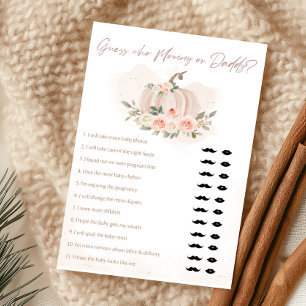 Guess who Mommy or Daddy?
1. I will take more baby photos
2. I will take care of the night feeds
3. I found out we were pregnant first
4. I buy the most baby clothes
5. I'm enjoying the pregnancy
6. I will change the most diapers
7. I want more children
8. I hope the baby gets my smarts
9. I will spoil the baby most
10. I'm more nervous about labor & delivery
11. I hope the baby looks like me